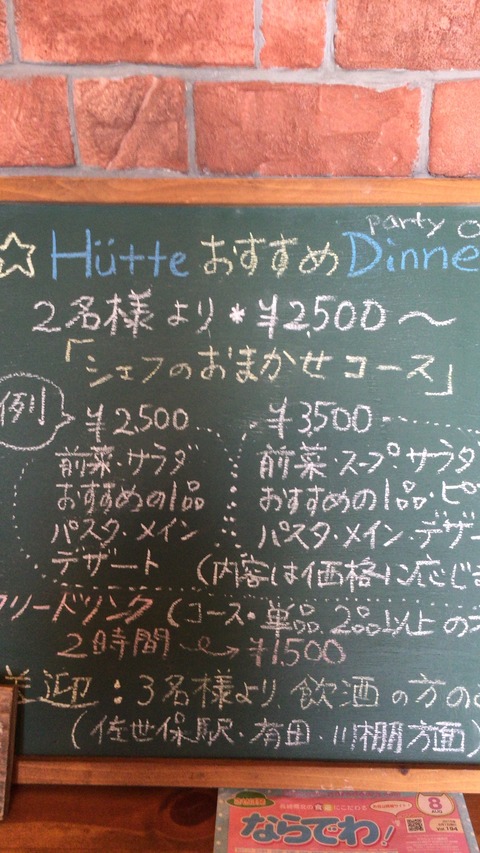 party
☆ Hütte おすすめ Dinne
2名様より * ¥2,500〜
「シェフのおまかせコース」
例
¥2,500
前菜・サラダ
おすすめの1品
パスタ・メイン
デザート
¥3500
前菜・スープ・サラダ
おすすめの1品・ピ
パスタ・メイン・デザー
(内容は価格に応じ
フリードリンク (コース・単品2品以上の
2時間 → ¥1,500
迎:3名様より 飲酒の方の
(佐世保駅・有田・川棚方面)
8
ならでわ!